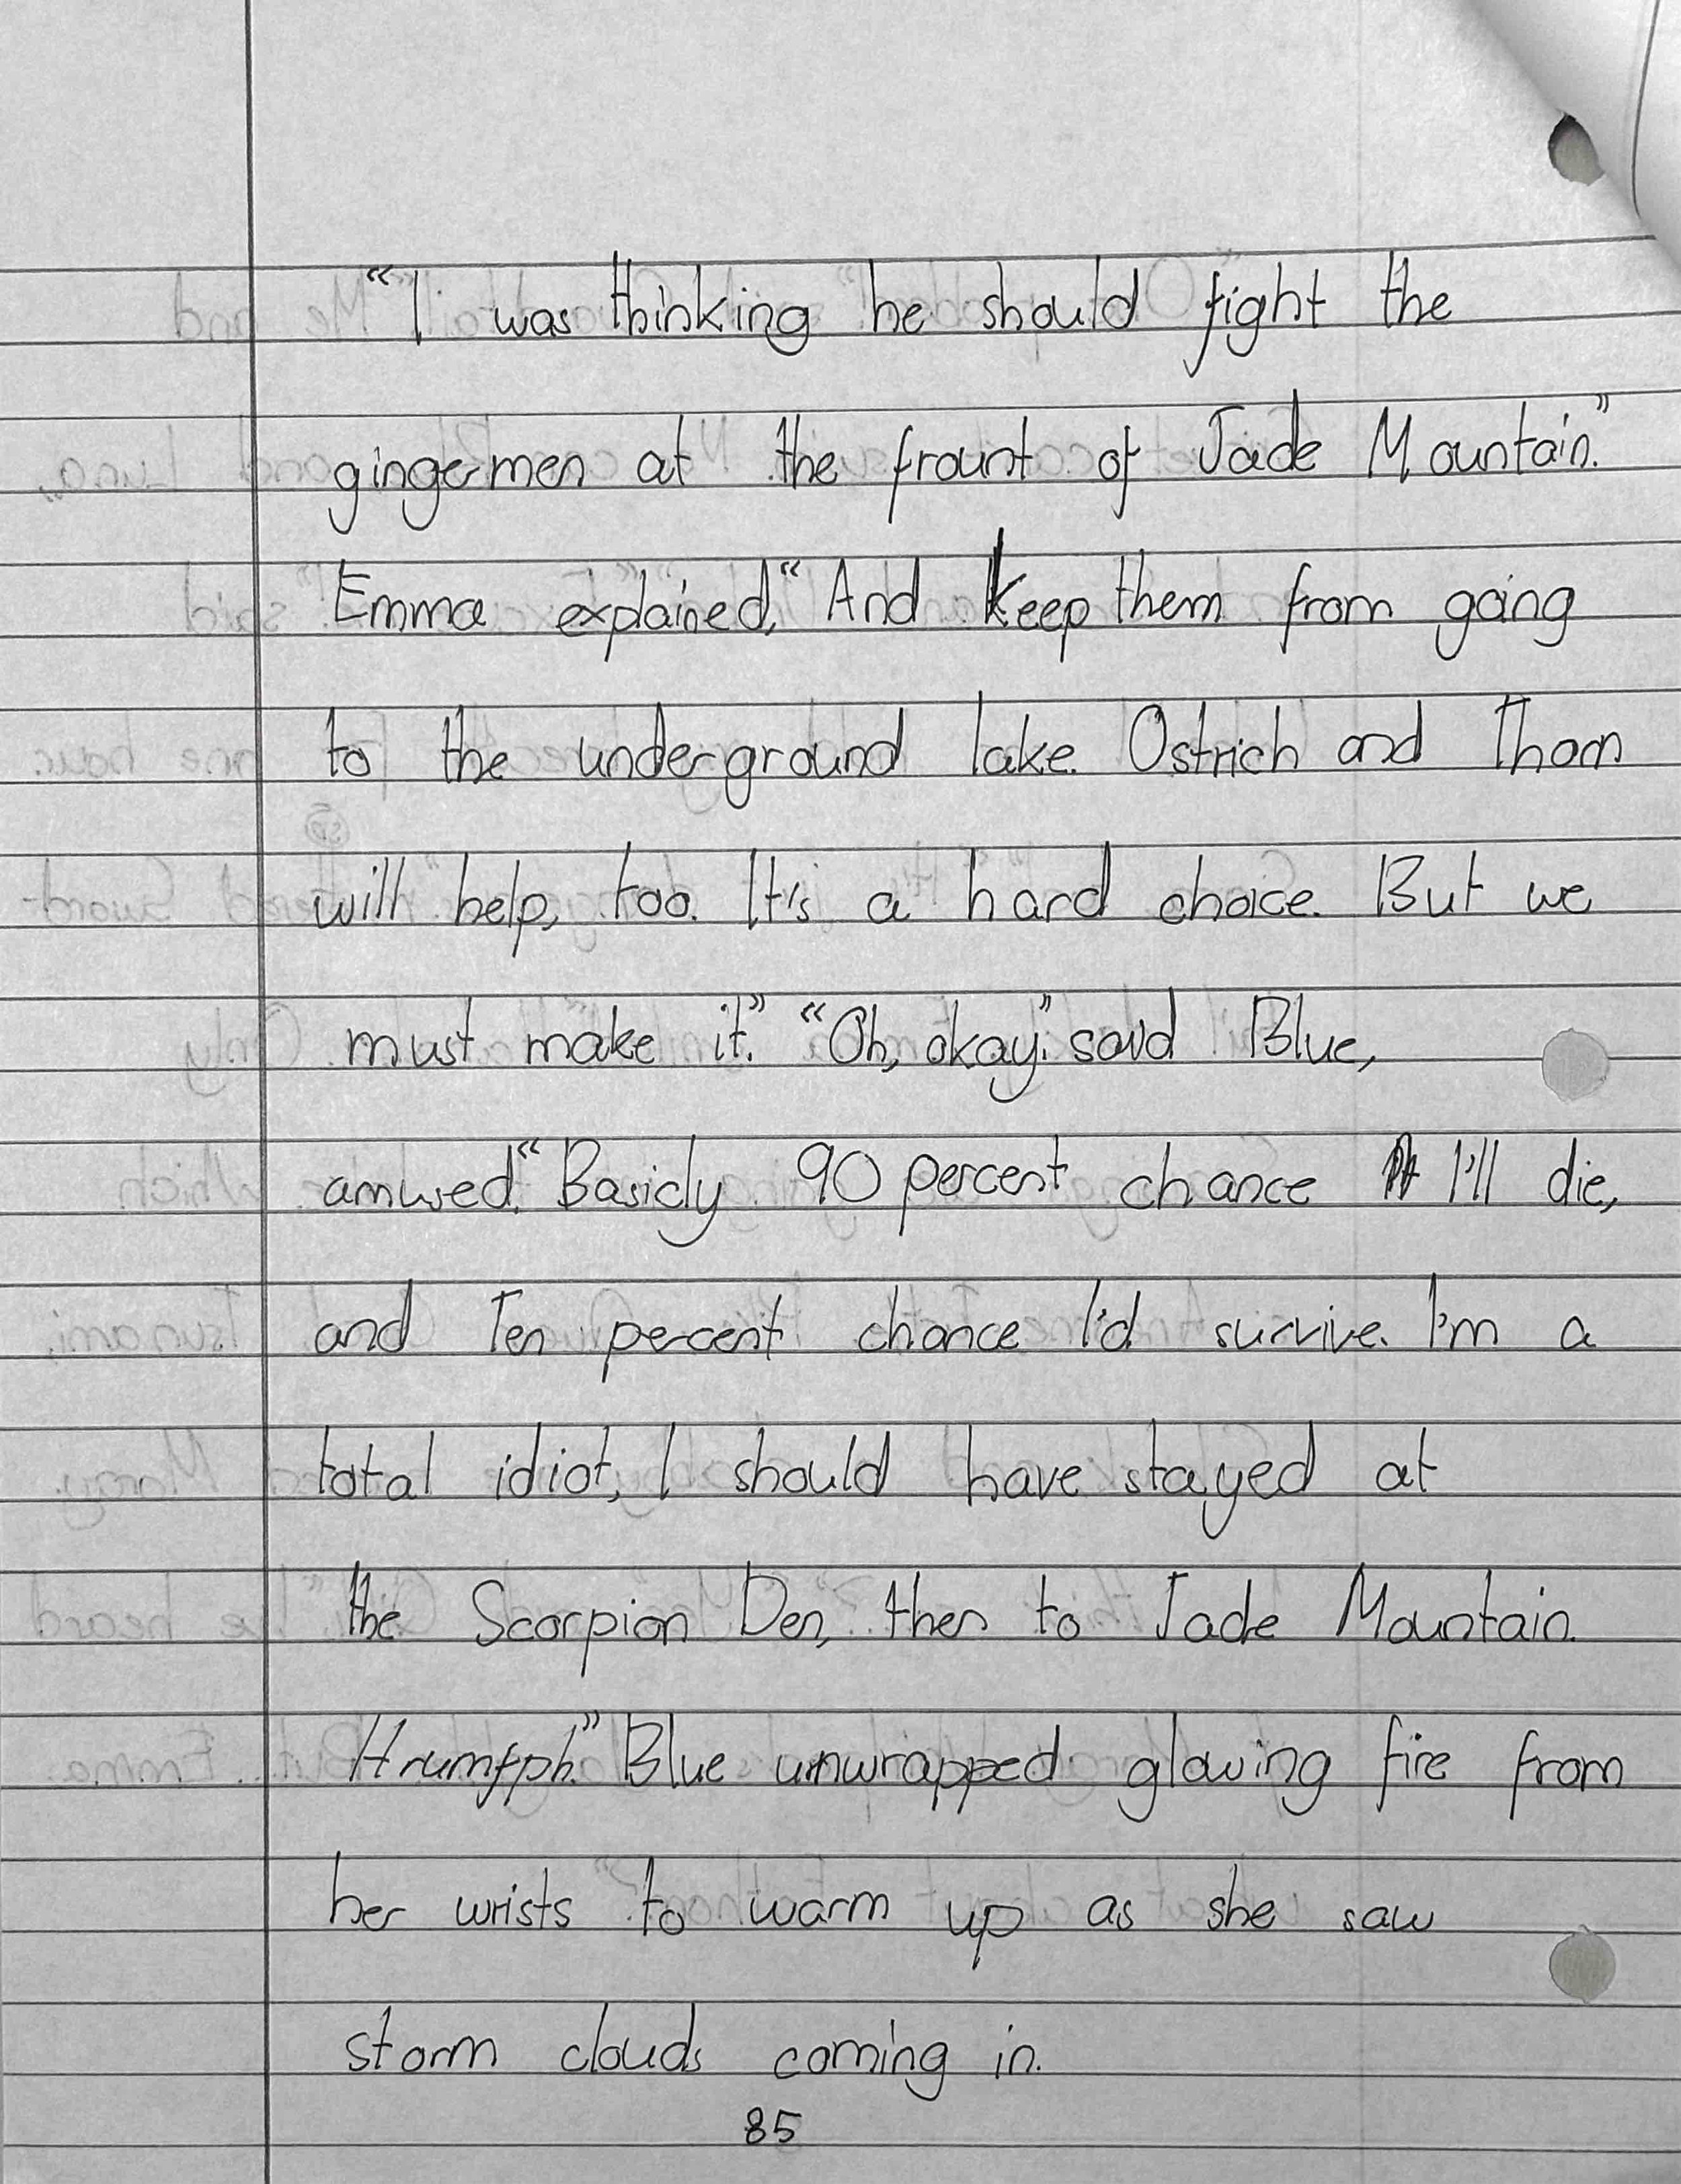 “I was thinking he should fight the
gingermen at the frount of Jade Mountain.”
Emma explained, “And keep them from going
to the underground lake. Ostrich and Thorn
will help, too. It's a hard choice. But we
must make it.” “Oh, okay.” said Blue,
amused. “Basicly 90 percent chance I'll die,
and Ten percent chance I'd survive. I'm a
total idiot, I should have stayed at
the Scorpion Den, then to Jade Mountain.
Hrumfph.” Blue unwrapped glowing fire from
her wrists to warm up as she saw
storm clouds coming in.
85